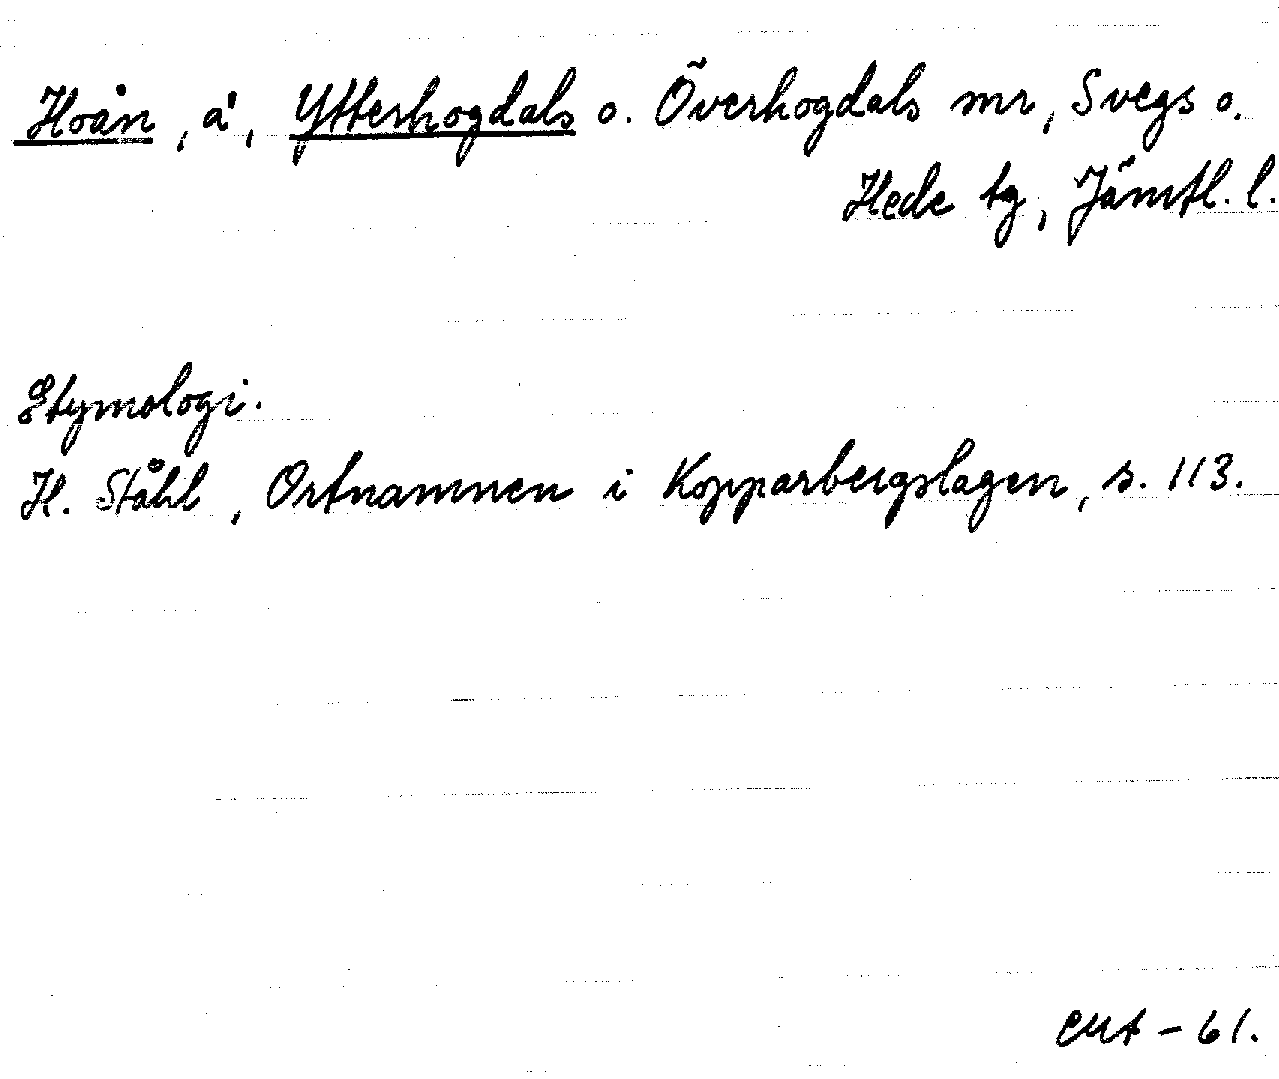 Hoån, å, Ytterhogdals o. Överhogdals mr, Svegs o.
Hede tg, Jämtl. l.
Etymologi.
H. Ståhl, Ortnamnen i Kopparbergslagen, s. 113.
- 61.